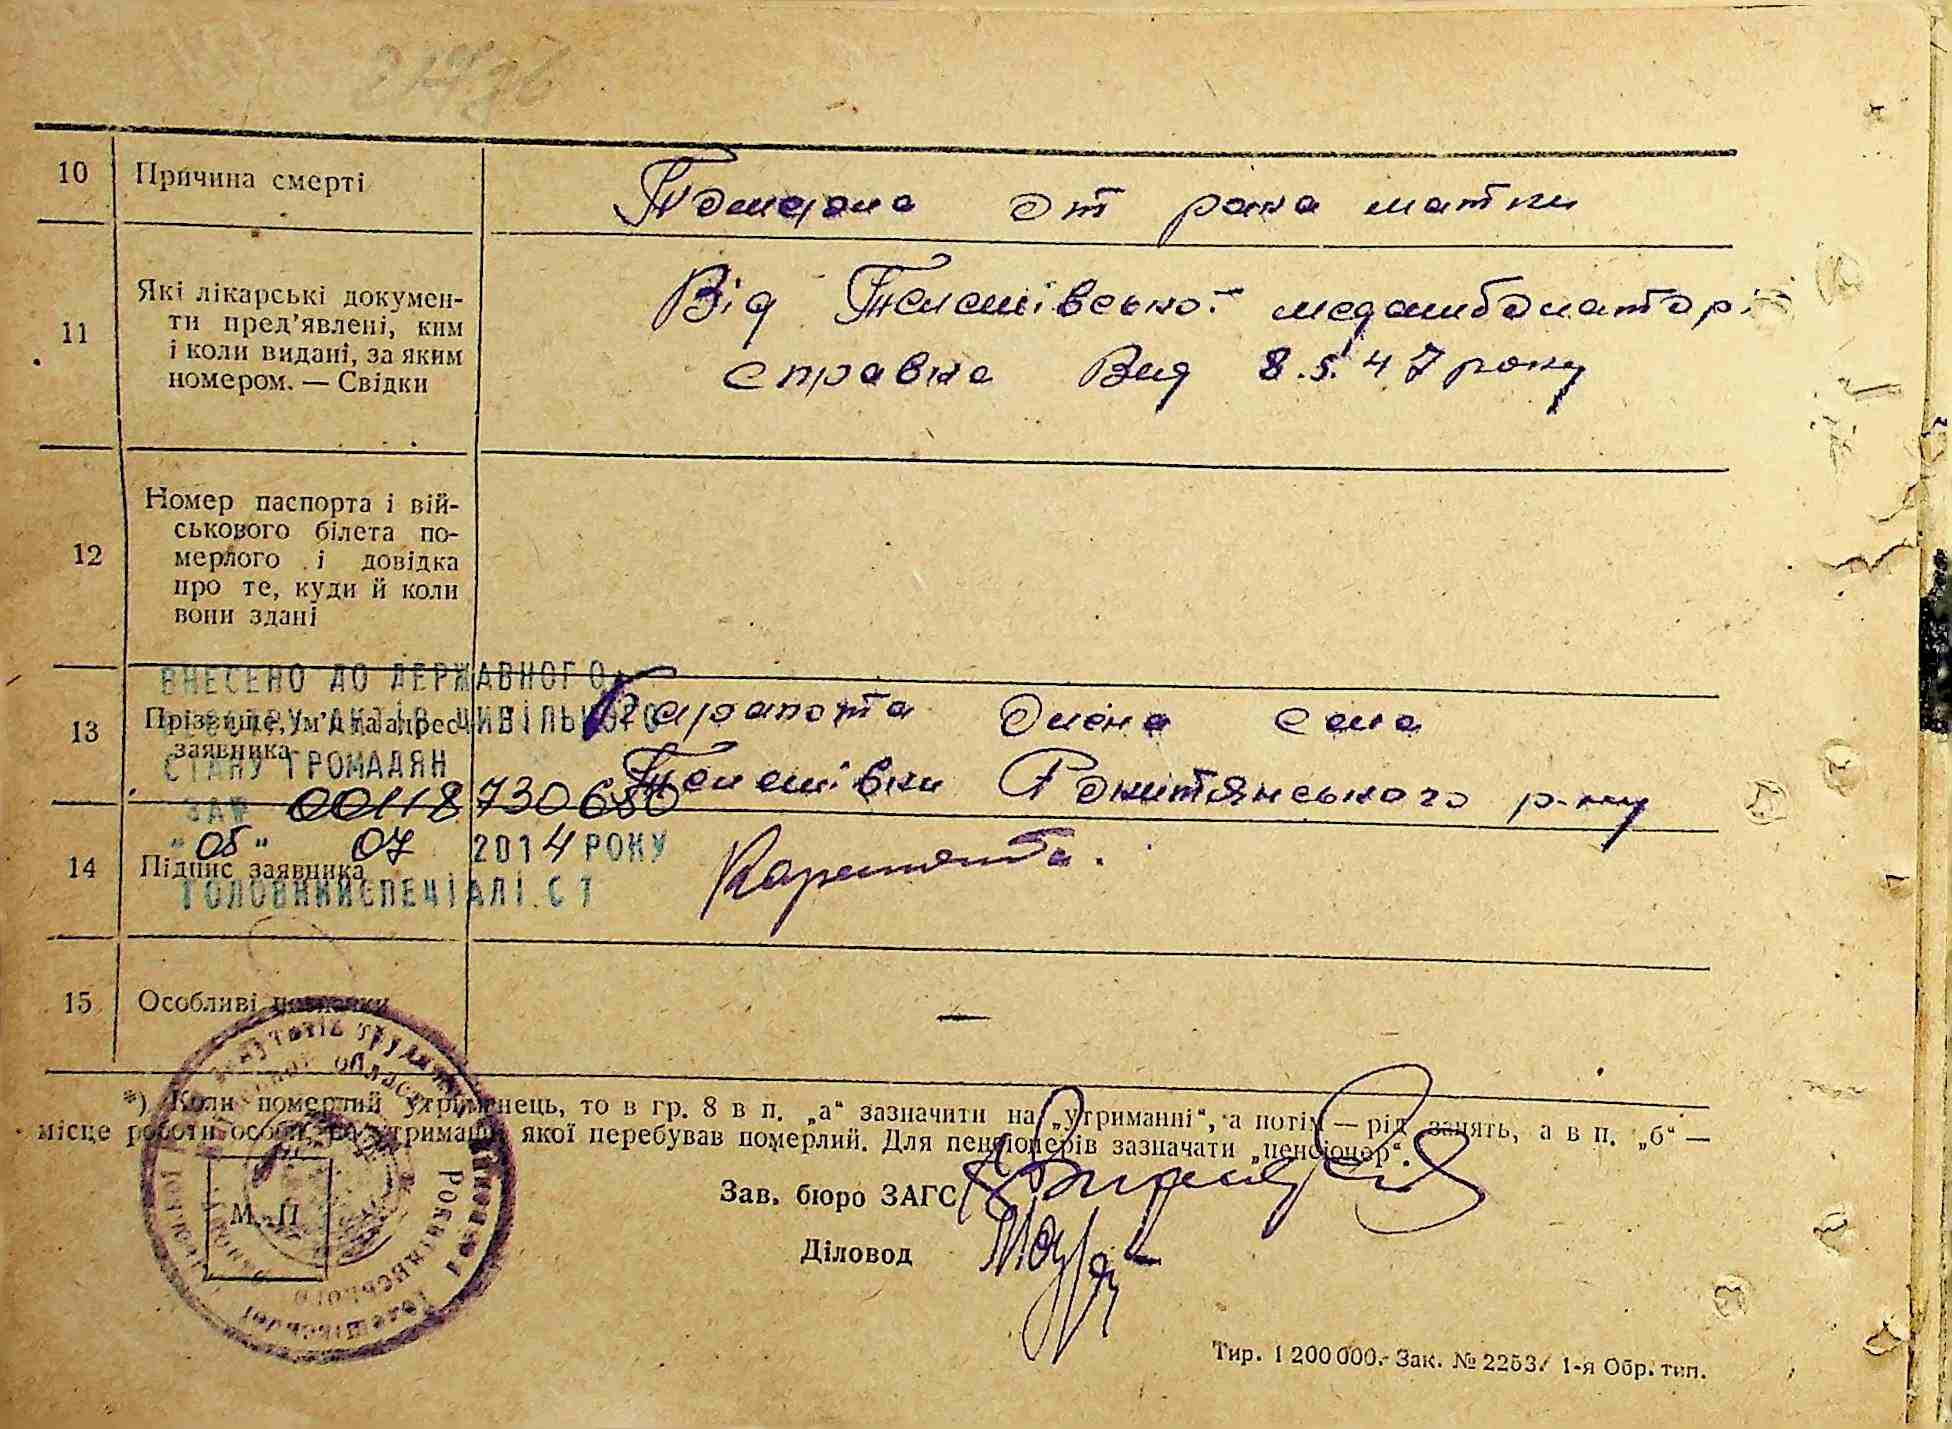 10 Причина смерті
Померла от рака матки
11 Які лікарські документи пред'явлені, ким і коли видані, за яким номером. — Свідки
Від Телешівської медамбулаторі
справка Вид 8.5.47 року
12 Номер паспорта і військового білета померлого і довідка про те, куди й коли вони здані
ВНЕСЕНО ДО ДЕРЖАВНОГО
РЕЄСТРУ АКТІВ ЦИВІЛЬНОГО
СТАНУ ГРОМАДЯН
ЗА № 00118730680
"08" 07 2014 РОКУ
ГОЛОВНИЙ СПЕЦІАЛІСТ
13 Прізвище, ім'я та адрес заявника
Олена села
Телешівки Рокитянського р-ну
14 Підпис заявника
15 Особливі познаки
—
*) Коли померлий утриманець, то в гр. 8 в п. „а“ зазначити на „утриманні“, а потім — рід занять, а в п. „б“ —
місце роботи особи, на утриманні якої перебував померлий. Для пенсіонерів зазначати „пенсіонер“.
Зав. бюро ЗАГС
Діловод
М. П.
Тир. 1 200 000. Зак. № 2253. 1-я Обр. тип.